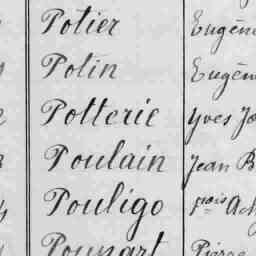 Potier Eugèn
Potin Eugèn
Potterie Yves Jo
Poulain Jean B
Pouligo fçois Ach
Poupart Pierre